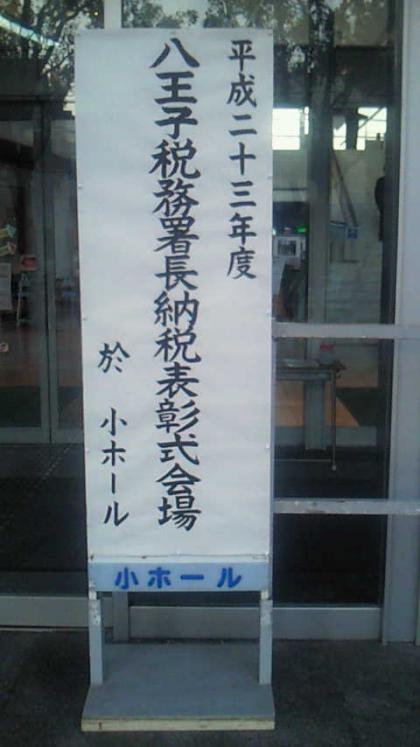 平成二十三年度
八王子税務署長納税表彰式会場
於 小ホール
小ホール